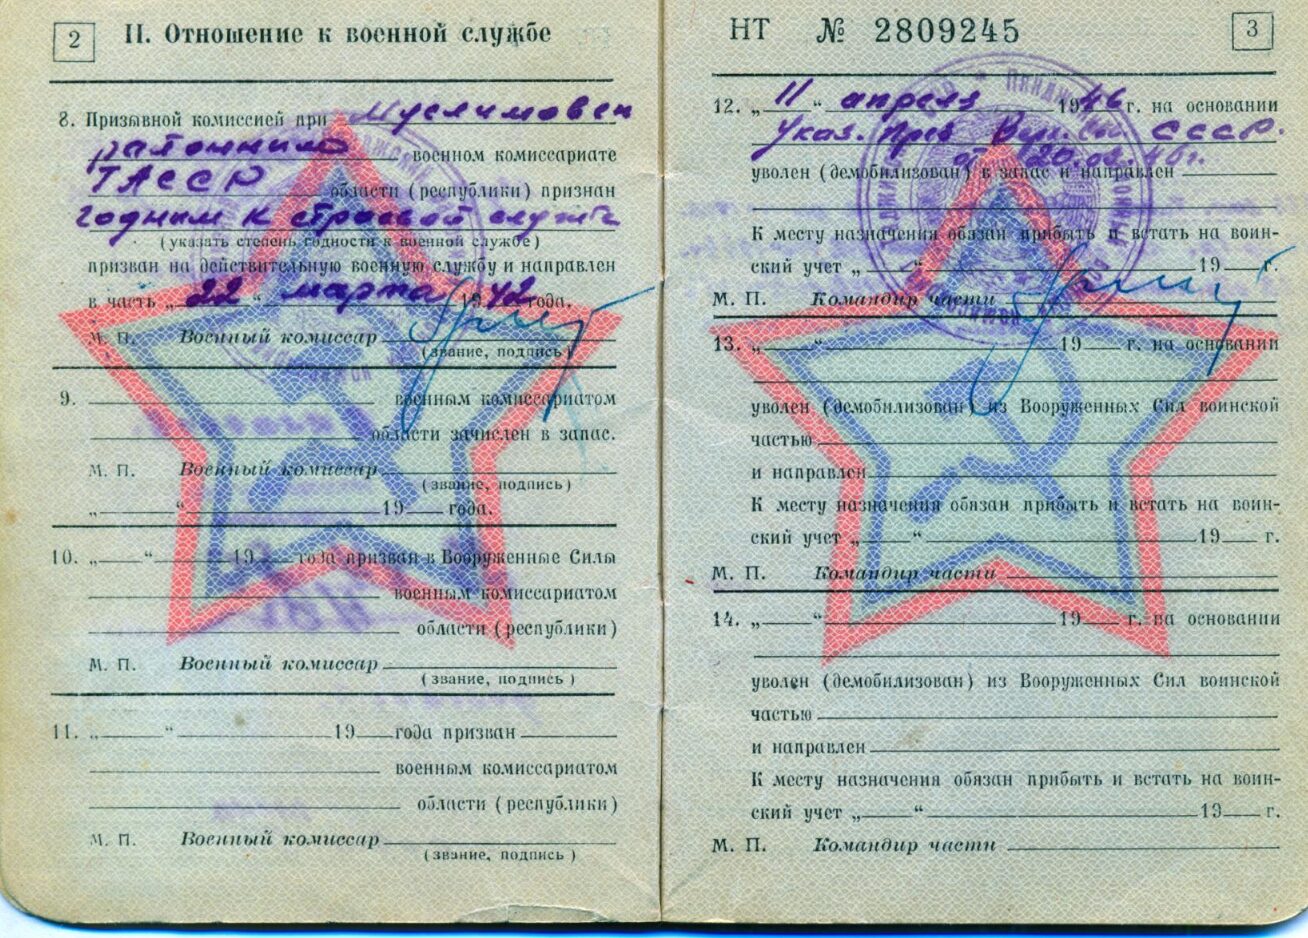 2
II. Отношение к военной службе
8. Призывной комиссией при Муслимовск
районным военном комиссариате
ТАССР области (республики) признан
годным к строевой службе
(указать степень годности к военной службе)
призван на действительную военную службу и направлен
в часть „22“ марта 1942 года.
М. П. Военный комиссар
(звание, подпись)
9. военным комиссариатом
области зачислен в запас.
М. П. Военный комиссар
(звание, подпись)
„ “ 19 года.
10. „ “ 19 года призван в Вооруженные Силы
военным комиссариатом
области (республики)
М. П. Военный комиссар
(звание, подпись)
11. „ “ 19 года призван
военным комиссариатом
области (республики)
М. П. Военный комиссар
(звание, подпись)
НТ № 2809245
3
12. „11“ апреля 1946 г. на основании
Указ. През. Вер. Сов. СССР.
от 20.03.46г.
уволен (демобилизован) в запас и направлен
К месту назначения обязан прибыть и встать на воин-
ский учет „ “ 19 г.
М. П. Командир части
13. „ “ 19 г. на основании
уволен (демобилизован) из Вооруженных Сил воинской
частью
и направлен
К месту назначения обязан прибыть и встать на воин-
ский учет „ “ 19 г.
М. П. Командир части
14. „ “ 19 г. на основании
уволен (демобилизован) из Вооруженных Сил воинской
частью
и направлен
К месту назначения обязан прибыть и встать на воин-
ский учет „ “ 19 г.
М. П. Командир части